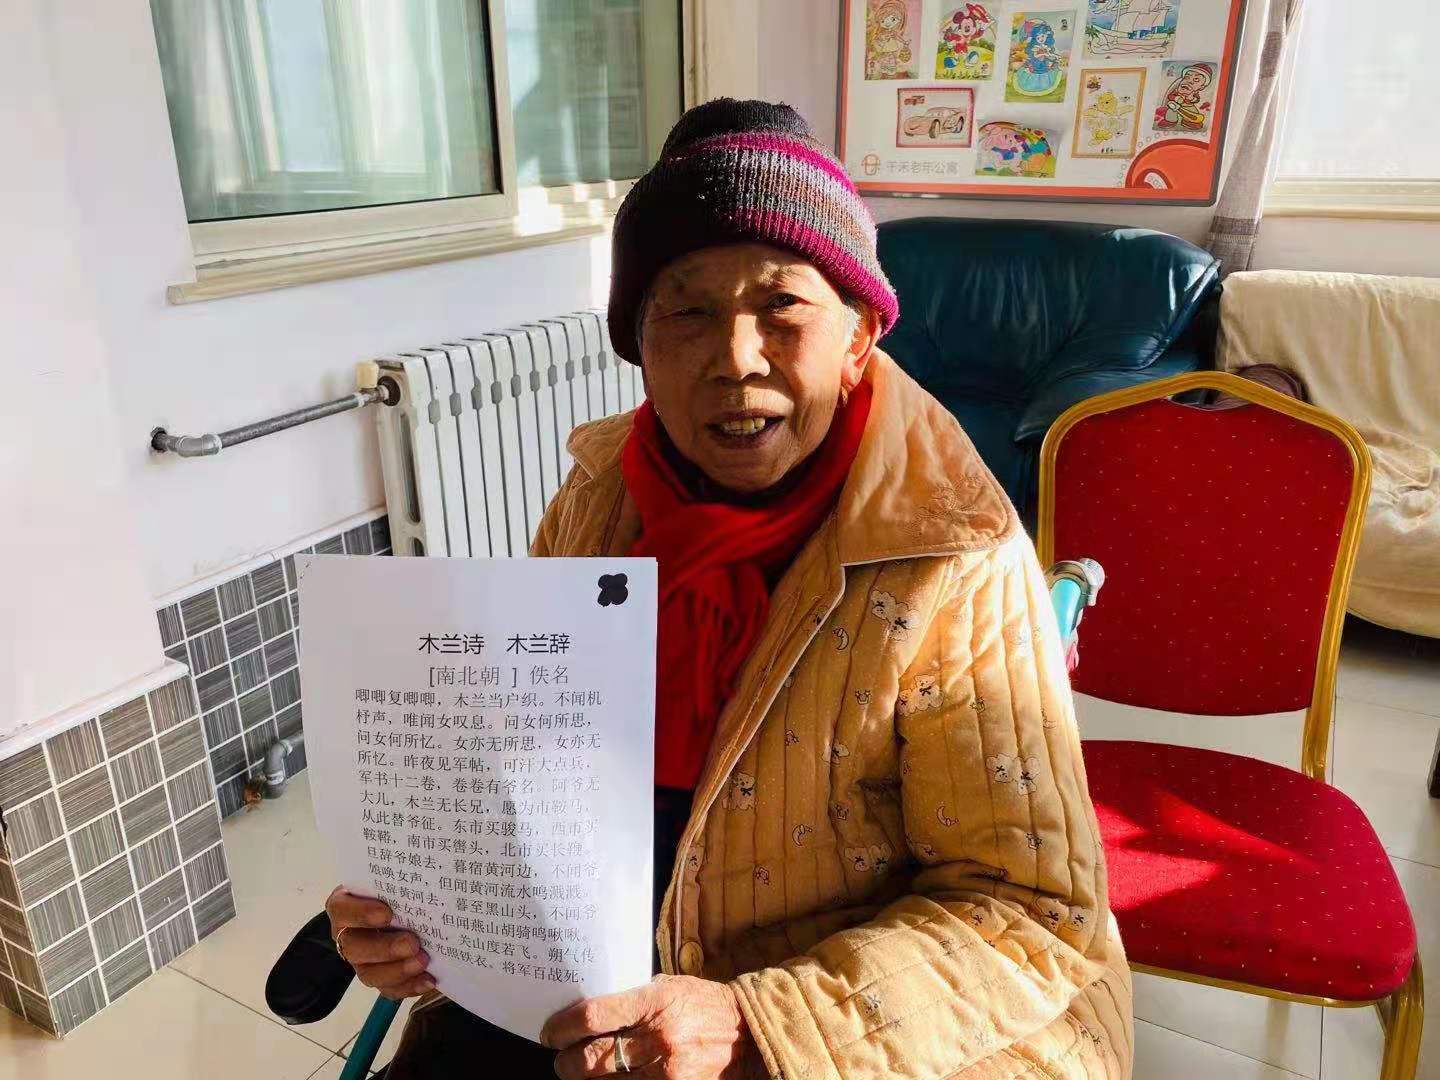 千禾老年公寓
木兰诗 木兰辞
[南北朝 ] 佚名
唧唧复唧唧，木兰当户织。不闻机
杼声，唯闻女叹息。问女何所思，
问女何所忆。女亦无所思，女亦无
所忆。昨夜见军帖，可汗大点兵，
军书十二卷，卷卷有爷名。阿爷无
大儿，木兰无长兄，愿为市鞍马，
从此替爷征。东市买骏马，西市买
鞍鞯，南市买辔头，北市买长鞭。
旦辞爷娘去，暮宿黄河边，不闻爷
娘唤女声，但闻黄河流水鸣溅溅。
旦辞黄河去，暮至黑山头，不闻爷
娘唤女声，但闻燕山胡骑鸣啾啾。
戎机，关山度若飞。朔气传
寒光照铁衣。将军百战死，